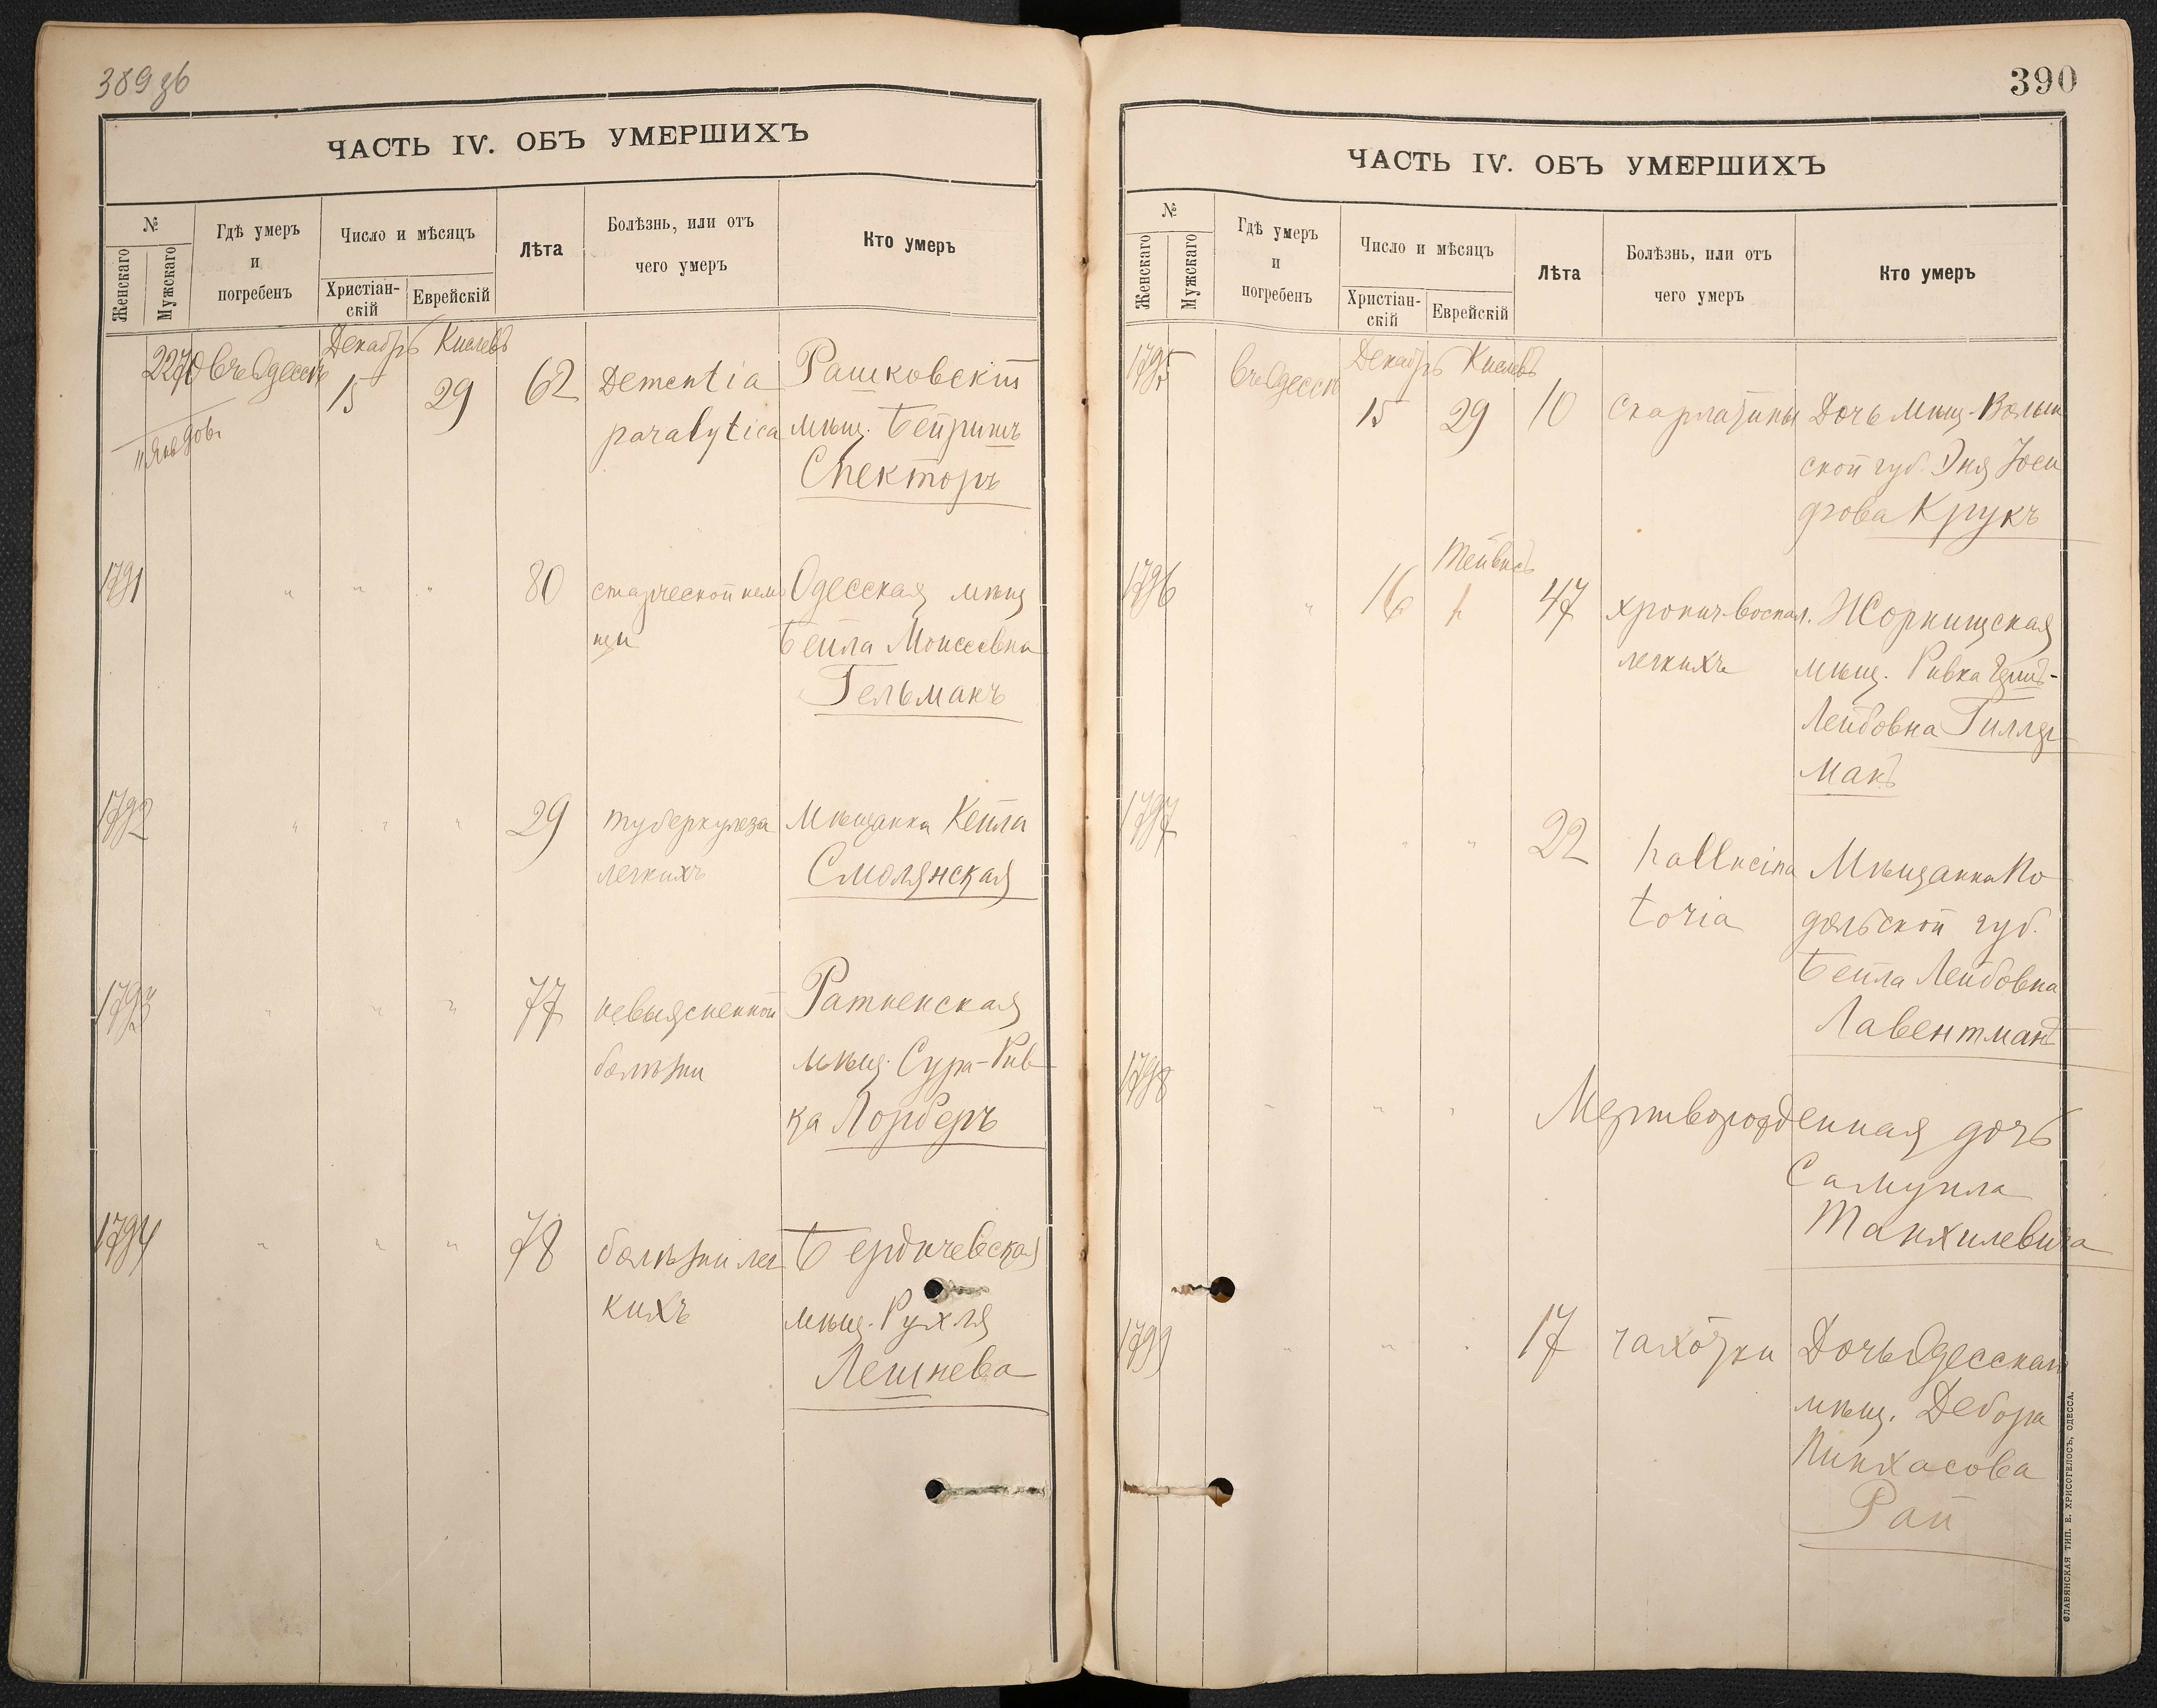 389 зв
ЧАСТЬ IV. ОБЪ УМЕРШИХЪ
№
Женскаго
Мужскаго
Гдѣ умеръ
и
погребенъ
Число и мѣсяцъ
Христіан-
скій
Еврейскій
Лѣта
Болѣзнь, или отъ
чего умеръ
Кто умеръ
Декабрь Кислевъ
2270 въ Одессѣ 15 29 62 Dementia Рашковскій
paralytica мѣщ. Бейришъ
Спекторъ
1791 " " " 80 старческой немо Одесская мѣщ
щи Бейла Моисеевна
Гельманъ
1792 " " " 29 туберкулеза Мѣщанка Кейла
легкихъ Смолянская
1793 " " " 77 невыясненной Ратненская
болѣзни мѣщ. Сура-Рив
ка Лорберъ
1794 " " " 78 болѣзни лег Бердичевская
кихъ мѣщ. Рухля
Лешнева
390
ЧАСТЬ IV. ОБЪ УМЕРШИХЪ
№
Женскаго
Мужскаго
Гдѣ умеръ
и
погребенъ
Число и мѣсяцъ
Христіан-
скій
Еврейскій
Лѣта
Болѣзнь, или отъ
чего умеръ
Кто умеръ
Декабрь Кислевъ
1795 въ Одессѣ 15 29 10 скарлатины Дочь мѣщ. Волын
ской губ. Эня Іоси
фова Крукъ
Тейвисъ
1796 " 16 47 хронич. воспал. Жорнищская
легкихъ мѣщ. Ривка
Лейбовна Гилляр
манъ
1797 " " " 22 hallucina Мѣщанка По
toria дольской губ.
Бейла Лейбовна
Лавентманъ
1798 " " " Мертворожденная дочь
Самуила
Танхилевича
1799 " " " 17 чахотки Дочь Одесскаго
мѣщ. Дебора
Пинхасова
Рай
СЛАВЯНСКАЯ ТИП. Е. ХРИСОГЕЛОСЪ, ОДЕССА.